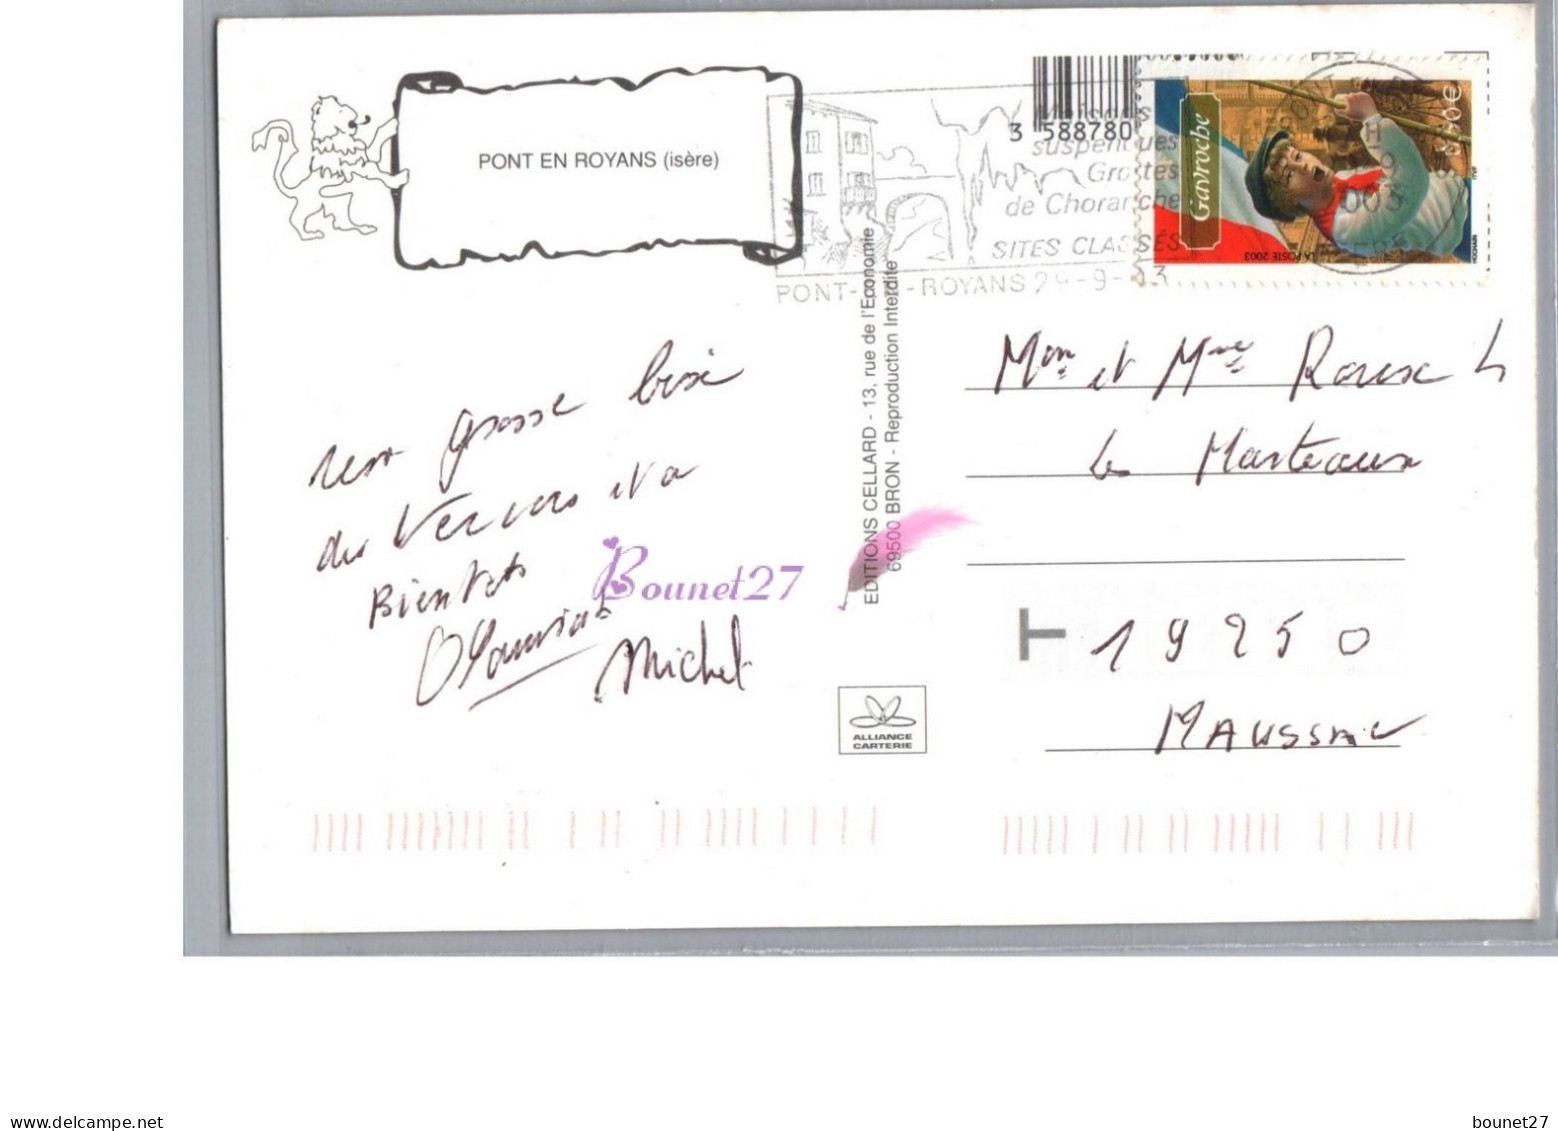 PONT EN ROYANS (isère)
3 588780
Maisons
suspendues
Grottes
de Choranche
SITES CLASSÉS
PONT-EN-ROYANS 29-9-03
Gavroche
0,50€
LA POSTE 2003
ITVF
EDITIONS CELLARD - 13, rue de l'Economie
69500 BRON - Reproduction Interdite
grosse bise
du Vercors et a
Bientot
Michel
Bounet27
Mon et Mme Roux
Les Marteaux
T 19250
MAUSSAC
ALLIANCE
CARTERIE
delcampe.net
bounet27